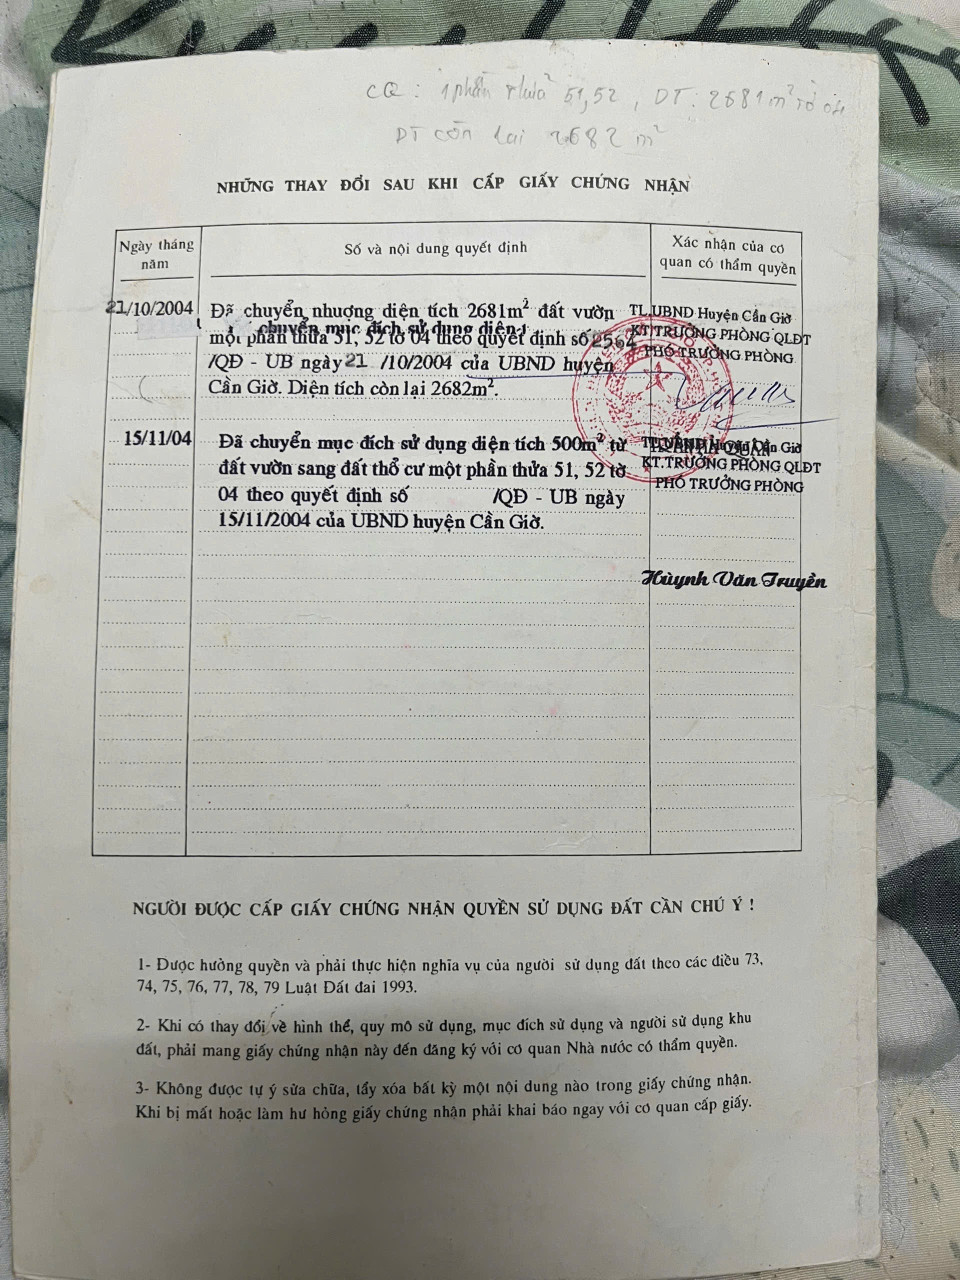 CQ: 1 phần thửa 51, 52, DT: 2681m² tờ 04
DT còn lại 2682 m²
NHỮNG THAY ĐỔI SAU KHI CẤP GIẤY CHỨNG NHẬN
Ngày tháng năm
Số và nội dung quyết định
Xác nhận của cơ quan có thẩm quyền
21/10/2004
Đã chuyển nhượng diện tích 2681m² đất vườn
chuyển mục đích sử dụng diện t
một phần thửa 51, 52 tờ 04 theo quyết định số 2564
/QĐ - UB ngày 21 /10/2004 của UBND huyện
Cần Giờ. Diện tích còn lại 2682m².
TL.UBND Huyện Cần Giờ
KT.TRƯỞNG PHÒNG QLĐT
PHÓ TRƯỞNG PHÒNG
15/11/04
Đã chuyển mục đích sử dụng diện tích 500m² từ
đất vườn sang đất thổ cư một phần thửa 51, 52 tờ
04 theo quyết định số /QĐ - UB ngày
15/11/2004 của UBND huyện Cần Giờ.
TL.UBND Huyện Cần Giờ
KT.TRƯỞNG PHÒNG QLĐT
PHÓ TRƯỞNG PHÒNG
Huỳnh Văn Truyền
NGƯỜI ĐƯỢC CẤP GIẤY CHỨNG NHẬN QUYỀN SỬ DỤNG ĐẤT CẦN CHÚ Ý !
1- Được hưởng quyền và phải thực hiện nghĩa vụ của người sử dụng đất theo các điều 73,
74, 75, 76, 77, 78, 79 Luật Đất đai 1993.
2- Khi có thay đổi về hình thể, quy mô sử dụng, mục đích sử dụng và người sử dụng khu
đất, phải mang giấy chứng nhận này đến đăng ký với cơ quan Nhà nước có thẩm quyền.
3- Không được tự ý sửa chữa, tẩy xóa bất kỳ một nội dung nào trong giấy chứng nhận.
Khi bị mất hoặc làm hư hỏng giấy chứng nhận phải khai báo ngay với cơ quan cấp giấy.